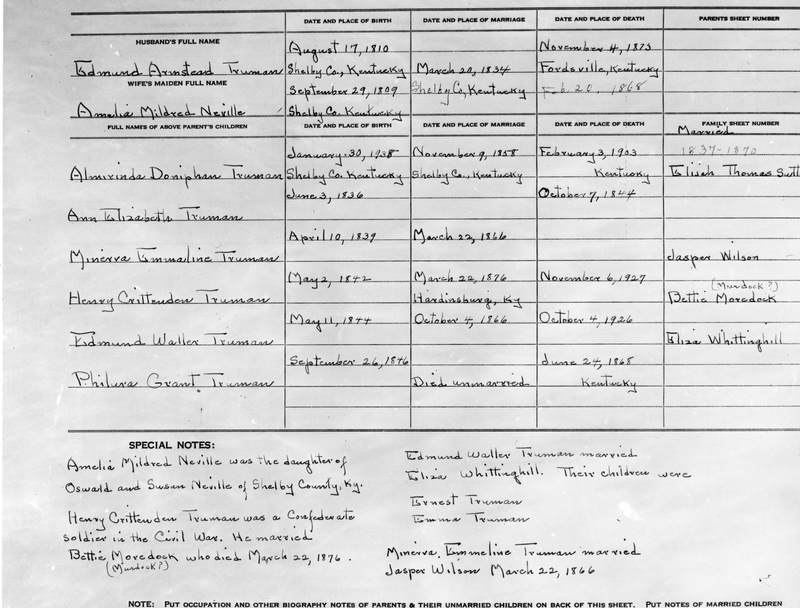 DATE AND PLACE OF BIRTH DATE AND PLACE OF MARRIAGE DATE AND PLACE OF DEATH PARENTS SHEET NUMBER
HUSBAND'S FULL NAME August 17, 1810 November 4, 1873
Edmund Armstead Truman Shelby Co., Kentucky March 20, 1834 Fordsville, Kentucky
WIFE'S MAIDEN FULL NAME September 29, 1809 Shelby Co, Kentucky Feb. 20, 1868
Amelia Mildred Neville Shelby Co., Kentucky
FULL NAMES OF ABOVE PARENT'S CHILDREN DATE AND PLACE OF BIRTH DATE AND PLACE OF MARRIAGE DATE AND PLACE OF DEATH FAMILY SHEET NUMBER
Married
January 30, 1938 November 9, 1858 February 3, 1903 1837-1870
Almirinda Doniphan Truman Shelby Co. Kentucky Shelby Co., Kentucky Kentucky Elijah Thomas Sutt
June 3, 1836 October 7, 1844
Ann Elizabeth Truman
April 10, 1839 March 22, 1866
Minerva Emmaline Truman Jasper Wilson
May 2, 1842 March 22, 1876 November 6, 1927 (Murdock?)
Henry Crittenden Truman Hardinsburg, Ky Bettie Moredock
May 11, 1844 October 4, 1866 October 4, 1926
Edmund Waller Truman Eliza Whittinghill
September 26, 1846 June 24, 1868
Philura Grant Truman Died unmarried Kentucky
SPECIAL NOTES:
Amelia Mildred Neville was the daughter of
Oswald and Susan Neville of Shelby County, Ky.
Henry Crittenden Truman was a Confederate
soldier in the Civil War. He married
Bettie Moredock who died March 22, 1876.
(Murdock?)
Edmund Waller Truman married
Eliza Whittinghill. Their children were
Ernest Truman
Emma Truman
Minerva Emmeline Truman married
Jasper Wilson March 22, 1866
NOTE: PUT OCCUPATION AND OTHER BIOGRAPHY NOTES OF PARENTS & THEIR UNMARRIED CHILDREN ON BACK OF THIS SHEET. PUT NOTES OF MARRIED CHILDREN